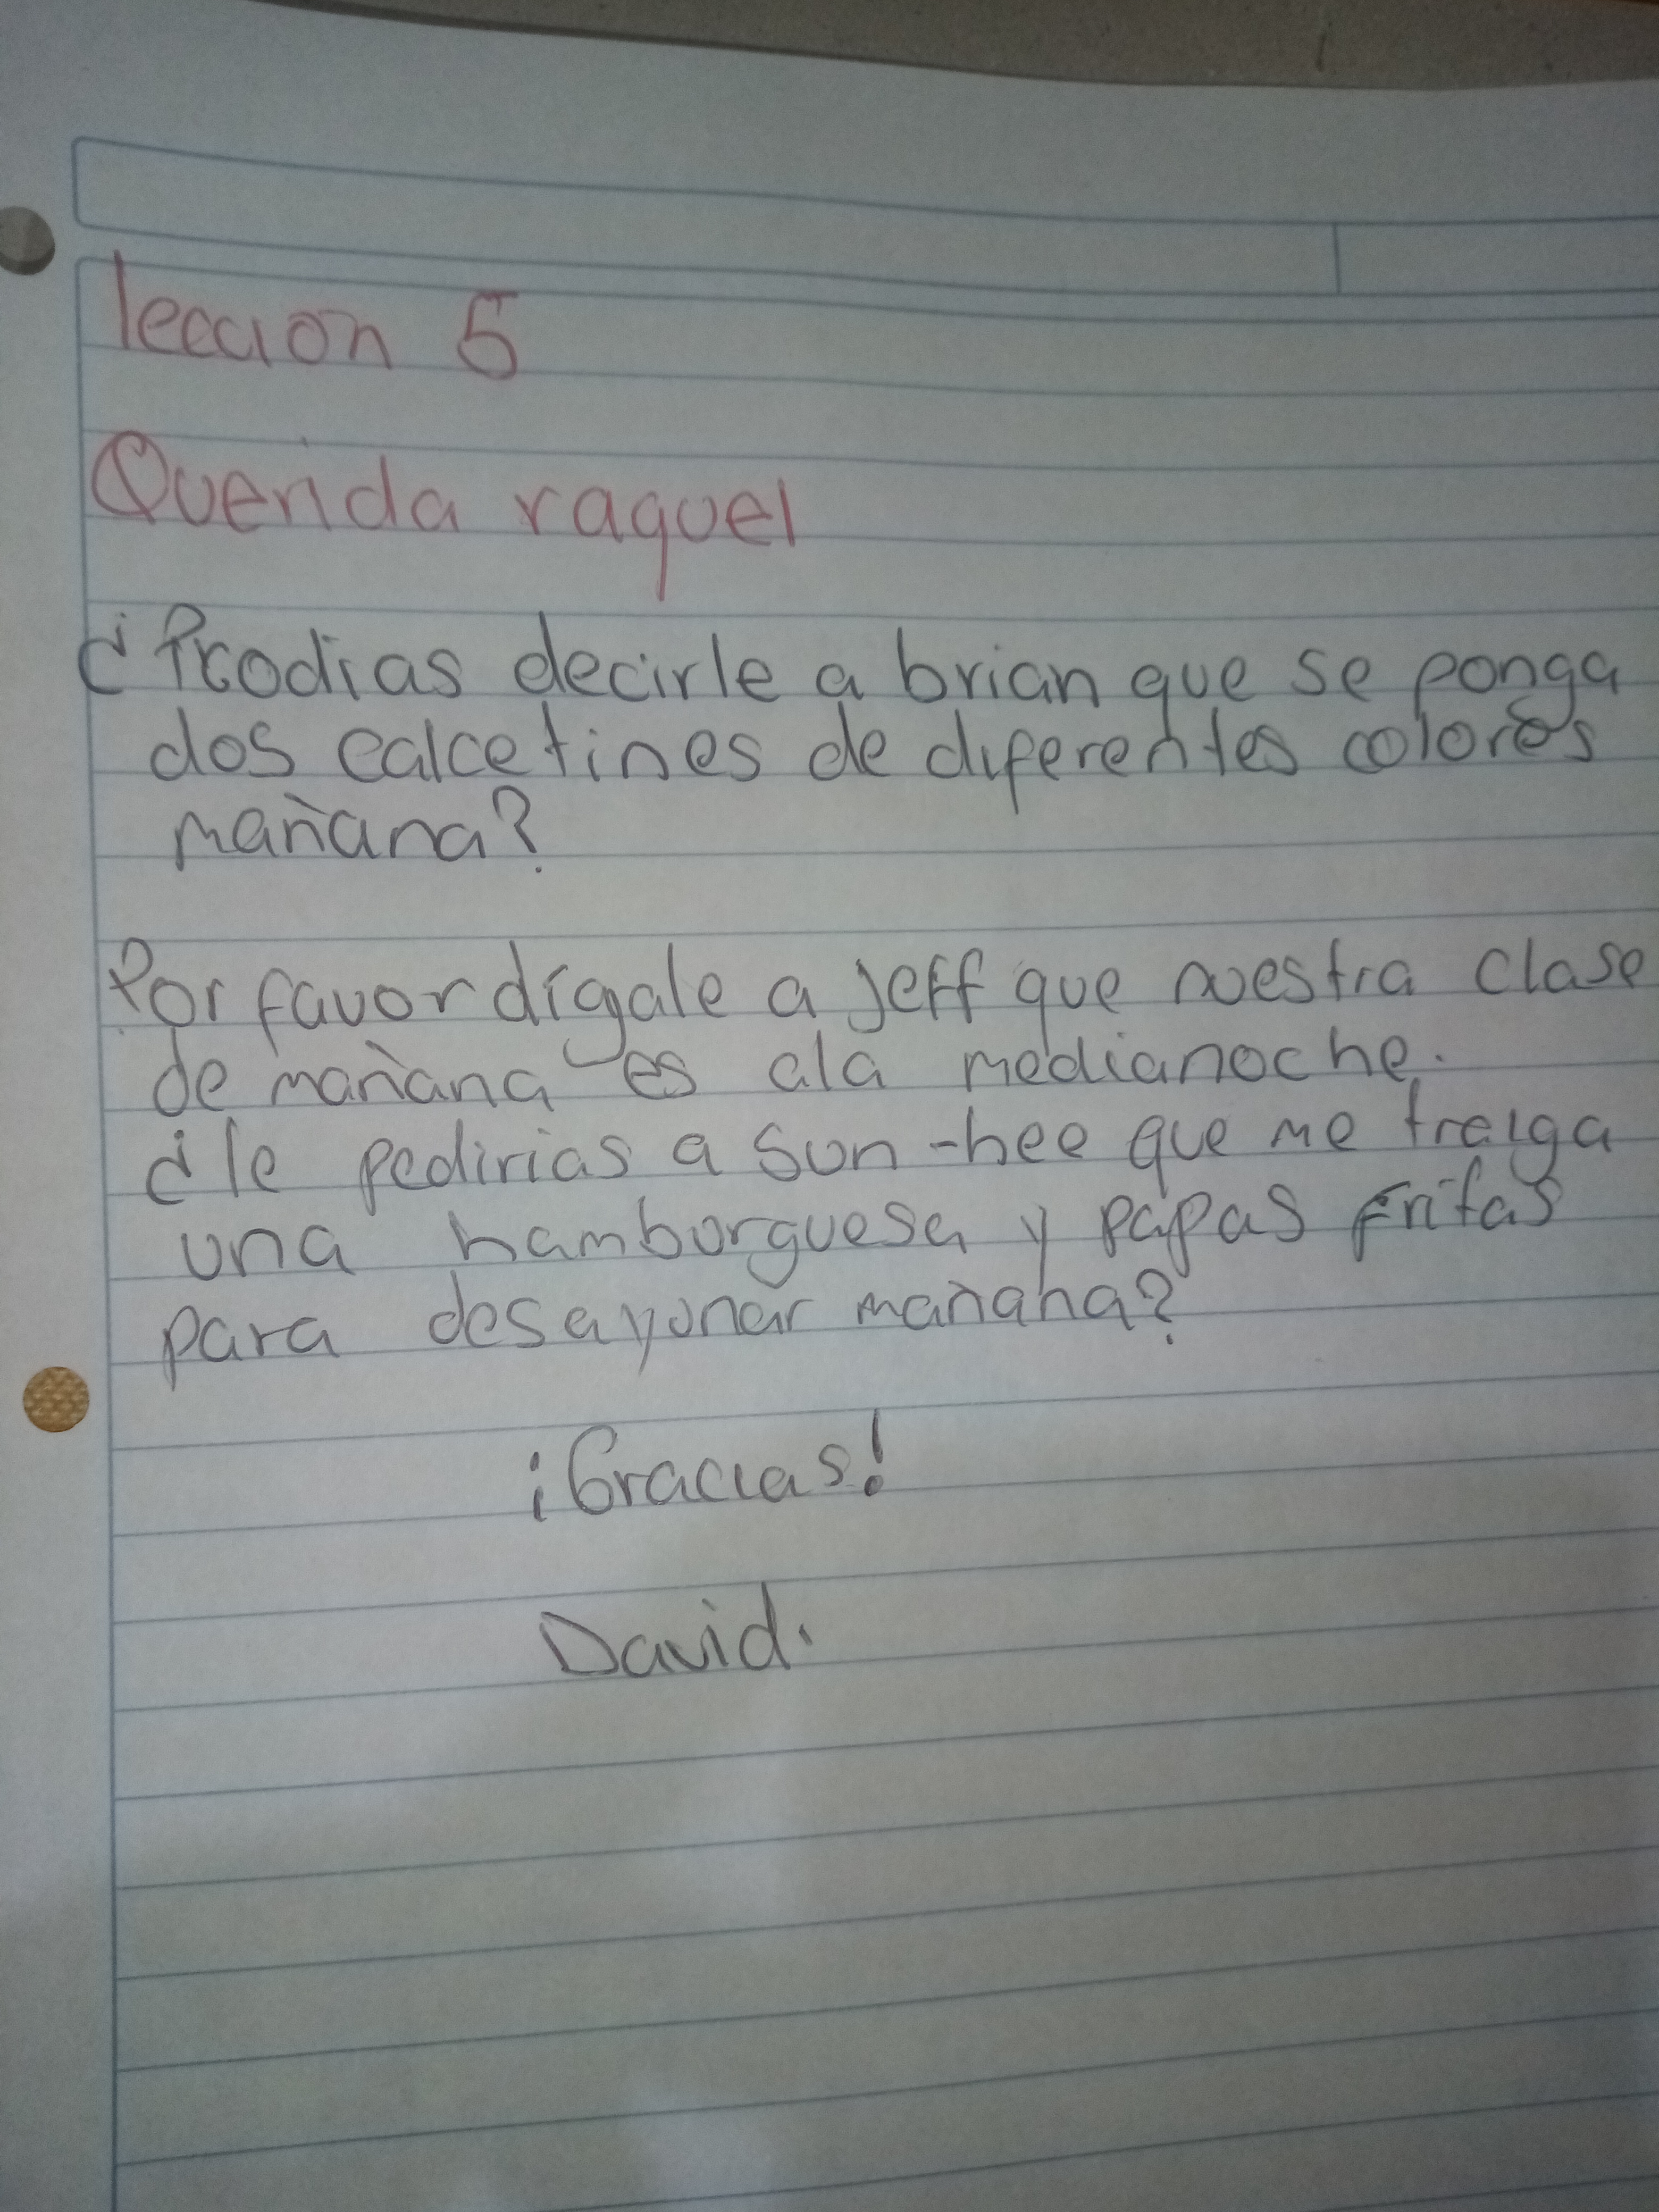 leccion 5
Querida raquel
¿Prodias decirle a brian que se ponga
dos calcetines de diferentes colores
mañana?
Por favor dígale a jeff que nuestra clase
de mañana es ala medianoche.
¿le pedirias a sun-hee que me traiga
una hamborguesa y papas fritas
para desayunar mañana?
¡Gracias!
David.